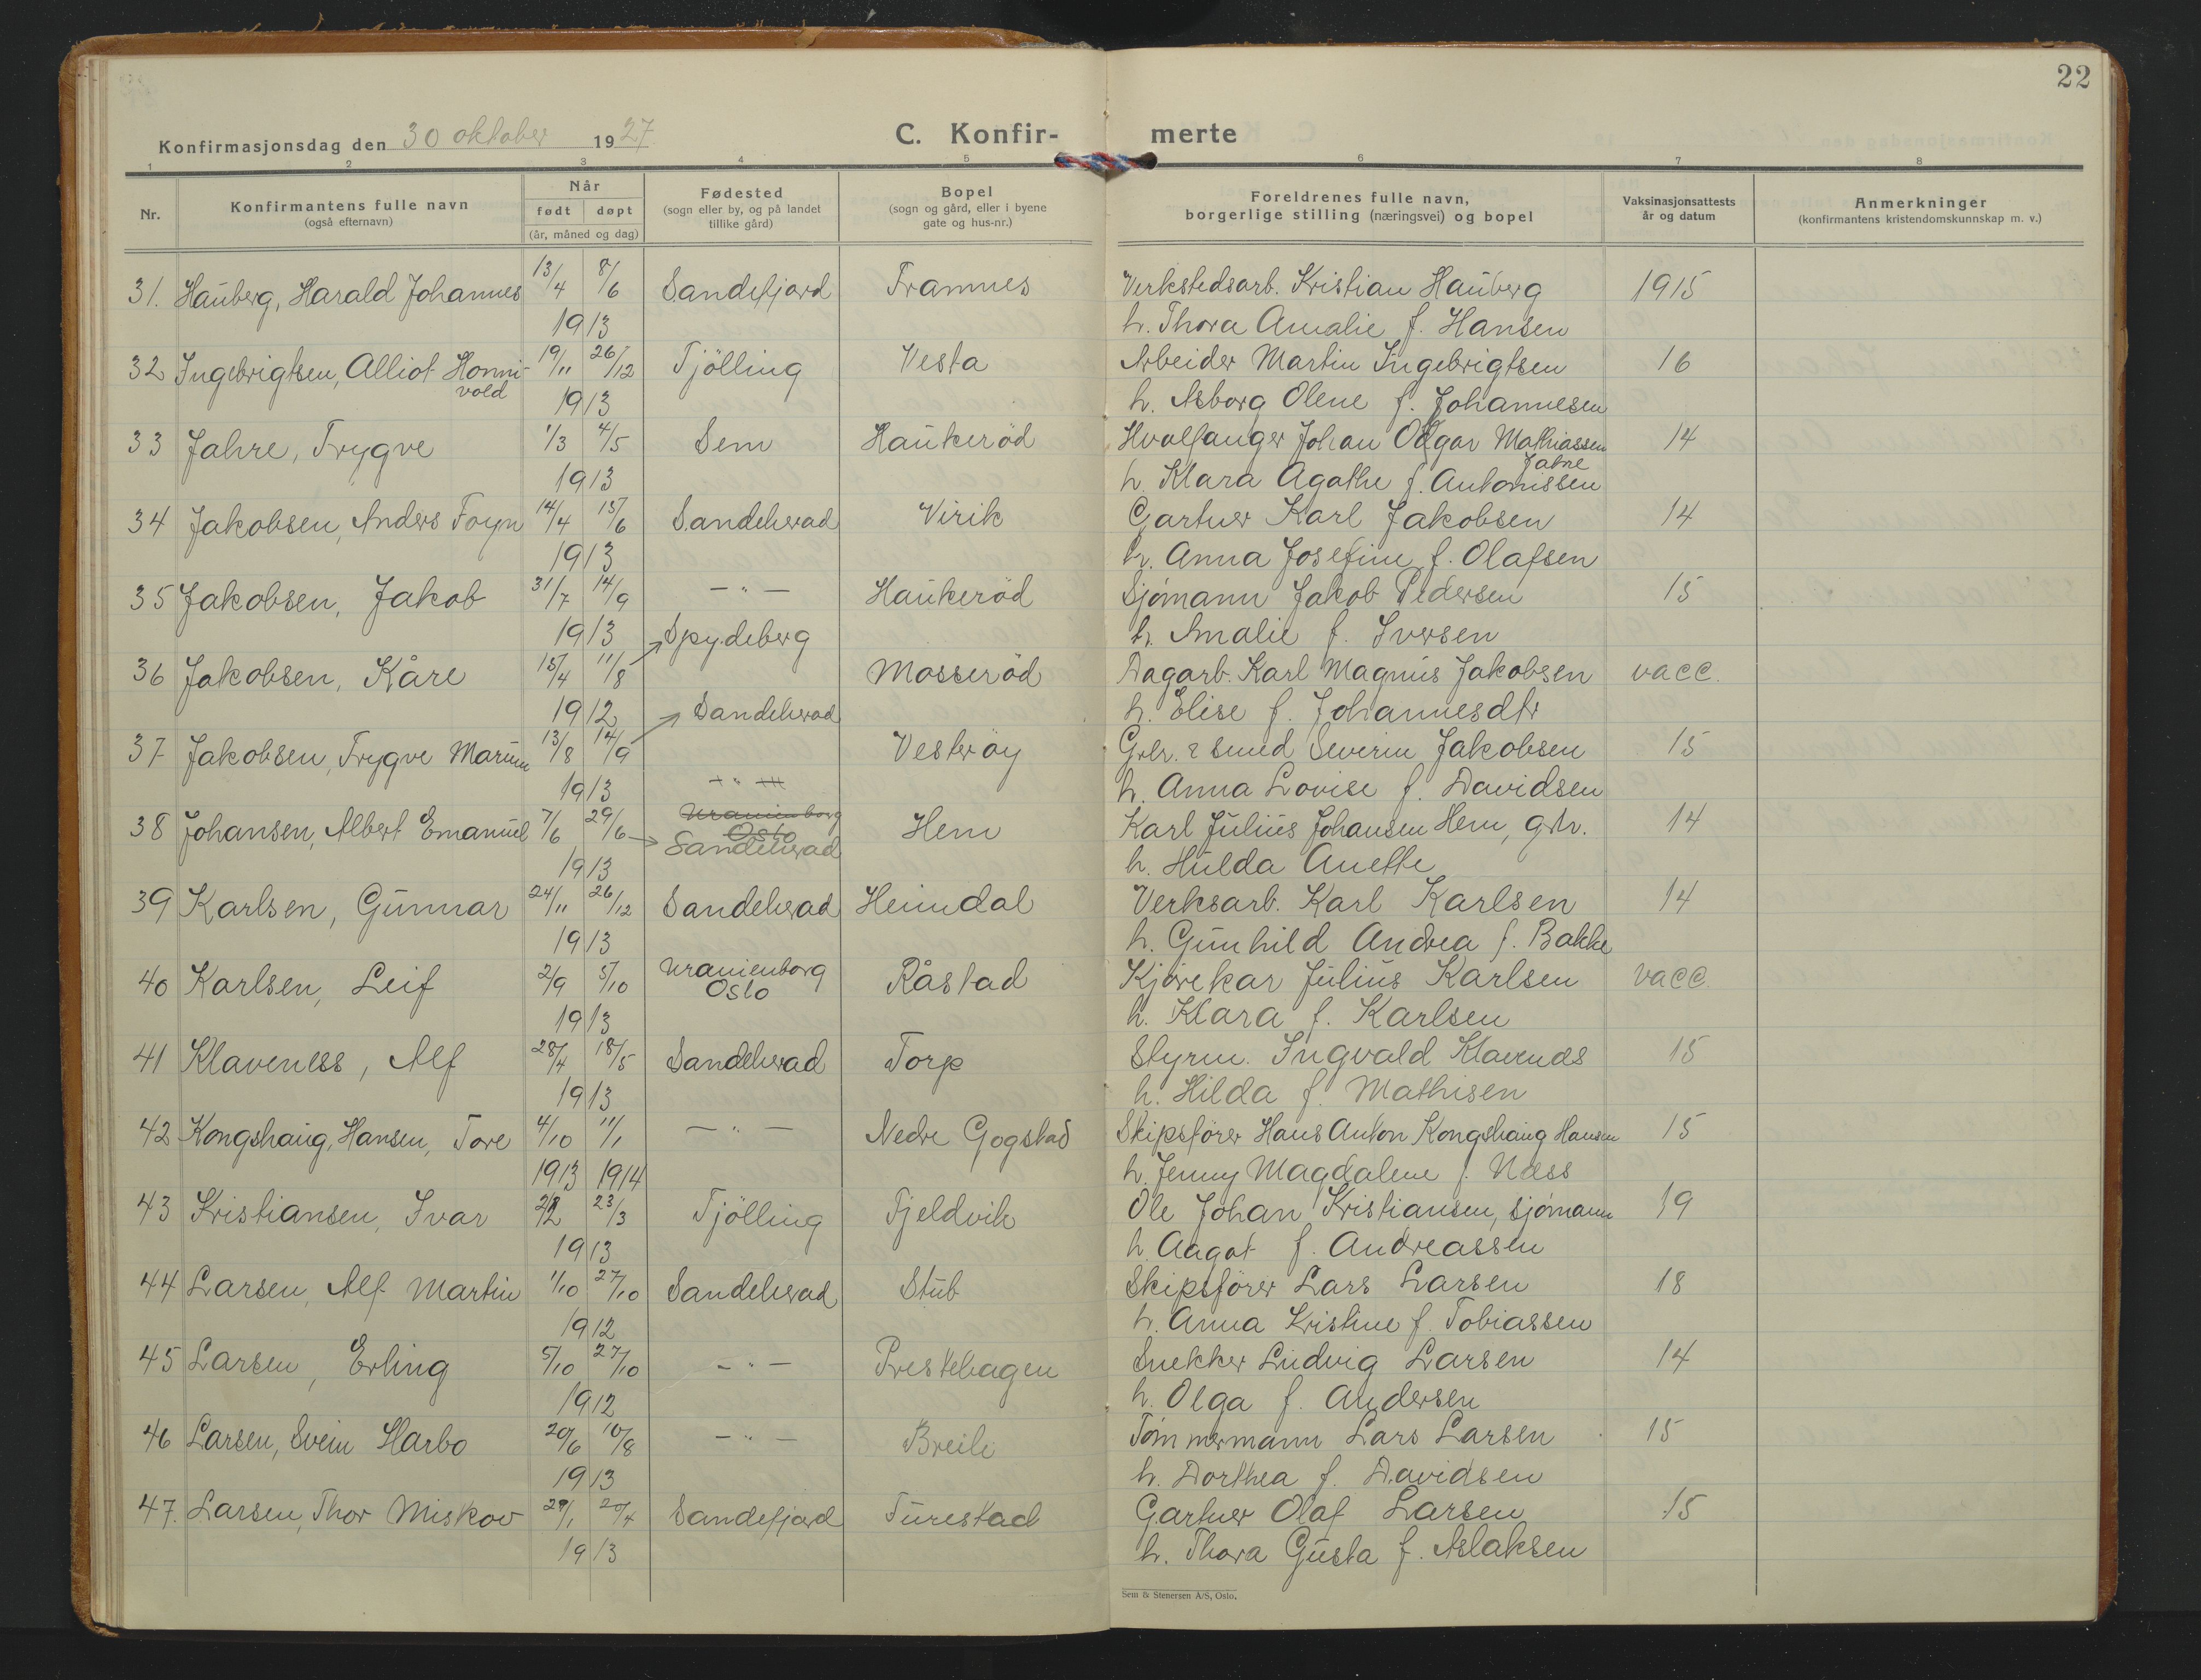 22
Konfirmasjonsdag den 30 oktober 1927.
C. Konfir- merte
1 2 3 4 5 6 7 8
Nr.
Konfirmantens fulle navn
(også efternavn)
Når
født døpt
(år, måned og dag)
Fødested
(sogn eller by, og på landet
tillike gård)
Bopel
(sogn og gård, eller i byene
gate og hus-nr.)
Foreldrenes fulle navn,
borgerlige stilling (næringsvei) og bopel
Vaksinasjonsattests
år og datum
Anmerkninger
(konfirmantens kristendomskunnskap m. v.)
31. Hauberg, Harald Johannes 13/4 8/6 Sandefjord Framnes Verkstedsarb. Kristian Hauberg 1915
1913 h. Thora Amalie f. Hansen
32 Ingebrigtsen, Alliot Honni- 19/11 26/12 Tjölling Vesta Arbeider Martin Ingebrigtsen 16
vold 1913 h. Asborg Olene f. Johannesen
33 Jahre, Trygve 1/3 4/5 Sem Haukeröd Hvalfanger Johan Odgar Mathiassen 14
Jahre
1913 h. Klara Agathe f. Antonissen
34 Jakobsen, Anders Foyn 14/4 15/6 Sandeherad Virik Gartner Karl Jakobsen 14
1913 h. Anna Josefine f. Olafsen
35 Jakobsen, Jakob 31/7 14/9 — " — Haukeröd Sjömann Jakob Pedersen 15
1913 h. Amalie f. Iversen
36 Jakobsen, Kåre 15/4 11/8 Spydeberg Mosseröd Dagarb. Karl Magnus Jakobsen vacc.
1912 h. Elise f. Johannesdtr
37 Jakobsen, Trygve Marius 13/8 14/9 Sandeherad Vesteröy Grbr. & smed Severin Jakobsen 15
1913 — " — h. Anna Lovise f. Davidsen
38 Johansen, Albert Emanuel 7/6 29/6 Uranienborg Hem Karl Julius Johansen Hem, gbr. 14
Oslo
Sandeherad
1913 h. Hulda Anette
39 Karlsen, Gunnar 24/11 26/12 Sandeherad Heimdal Verksarb. Karl Karlsen 14
1913 h. Gunhild Andrea f. Bakke
40 Karlsen, Leif 2/9 5/10 Uranienborg Råstad Kjörekar Julius Karlsen vacc.
Oslo
1913 h. Klara f. Karlsen
41 Klaveness, Alf 28/4 18/5 Sandeherad Torp Styrm. Ingvald Klavenæs 15
1913 h. Hilda f. Mathisen
42 Kongshaug, Hansen, Tore 4/10 11/1 — " — Nedre Gogstad Skipsförer Hans Anton Kongshaug Hansen 15
1913 1914 h. Jenny Magdalene f. Næss
43 Kristiansen, Ivar 2/2 23/3 Tjölling Fjeldvik Ole Johan Kristiansen, sjömann 19
1913 h. Aagot f. Andreassen
44 Larsen, Alf Martin 1/10 27/10 Sandeherad Stub Skipsförer Lars Larsen 18
1912 h. Anna Kristine f. Tobiassen
45 Larsen, Erling 5/10 27/10 — " — Prestehagen Snekker Ludvig Larsen 14
1912 h. Olga f. Andersen
46 Larsen, Svein Harbo 20/6 10/8 — " — Breili Tömmermann Lars Larsen 15
1913 h. Dorthea f. Davidsen
47. Larsen, Thor Miskov 29/1 20/4 Sandefjord Furestad Gartner Olaf Larsen 15
1913 h. Thora Gusta f. Aslaksen
Sem & Stenersen A/S, Oslo.